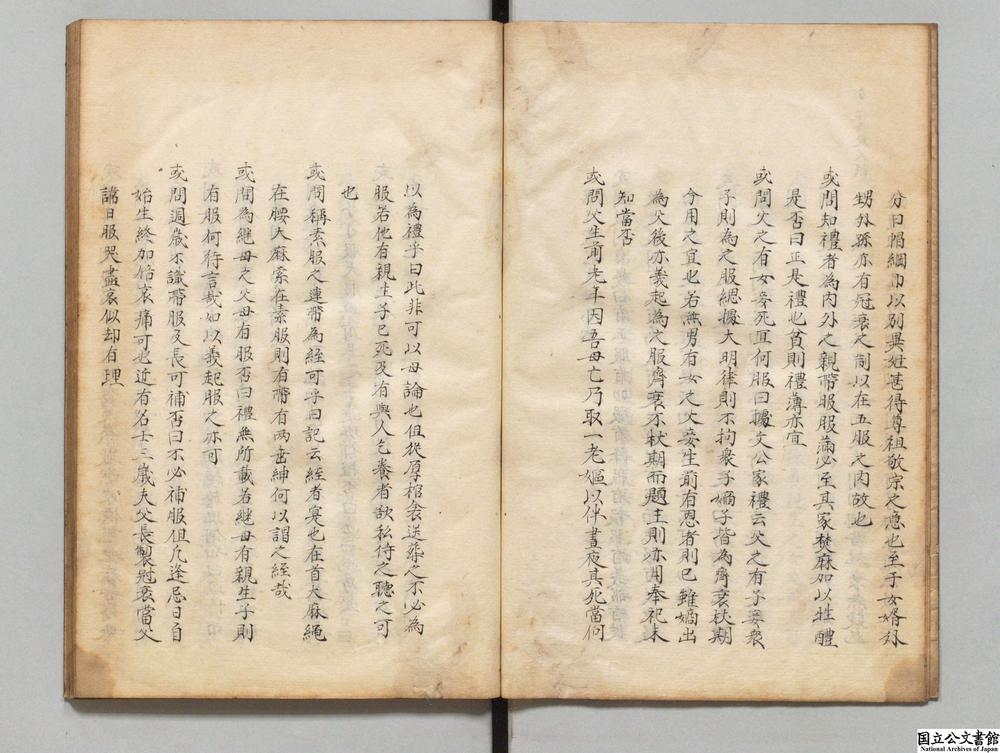 分曰帽綱巾以別異姓甚得尊祖敬宗之意也至于女婿外
甥外孫亦有冠衰之制以在五服之內故也
或問知禮者為內外之親帶服服滿必至其家焚麻如以牲醴
是否曰正是禮也貧則禮薄亦宜
或問父之有女妾死宜何服曰據文公家禮云父之有子妾衆
子則為之服緦據大明律則不拘衆子嫡子皆為齊衰杖期
今用之宜也若無男有女之父妾生前有恩者則已雖嫡出
為父後亦義起為之服齊衰不杖期而題主則亦用奉祀未
知當否
或問父生前老年因吾母亡乃取一老嫗以伴晝夜其死當何
以為禮乎曰此非可以母論也但從厚棺衾送葬之不必為
服若他有親生子已死及有與人乞養者欲私侍之聽之可
也
或問稱素服之連帶為絰可乎曰記云絰者實也在首大麻繩
在腰大麻索在素服則有帶有两岀紳何以謂之絰哉
或問為繼母之父母有服否曰禮無所載若繼母有親生子則
有服何待言哉如以義起服之亦可
或問週歲不識帶服及長可補否曰不必補服但凡逢忌日自
始生終加倍哀痛可也近有名士三歲失父長製冠衰當父
諱日服哭盡哀似却有理
国立公文書館
National Archives of Japan